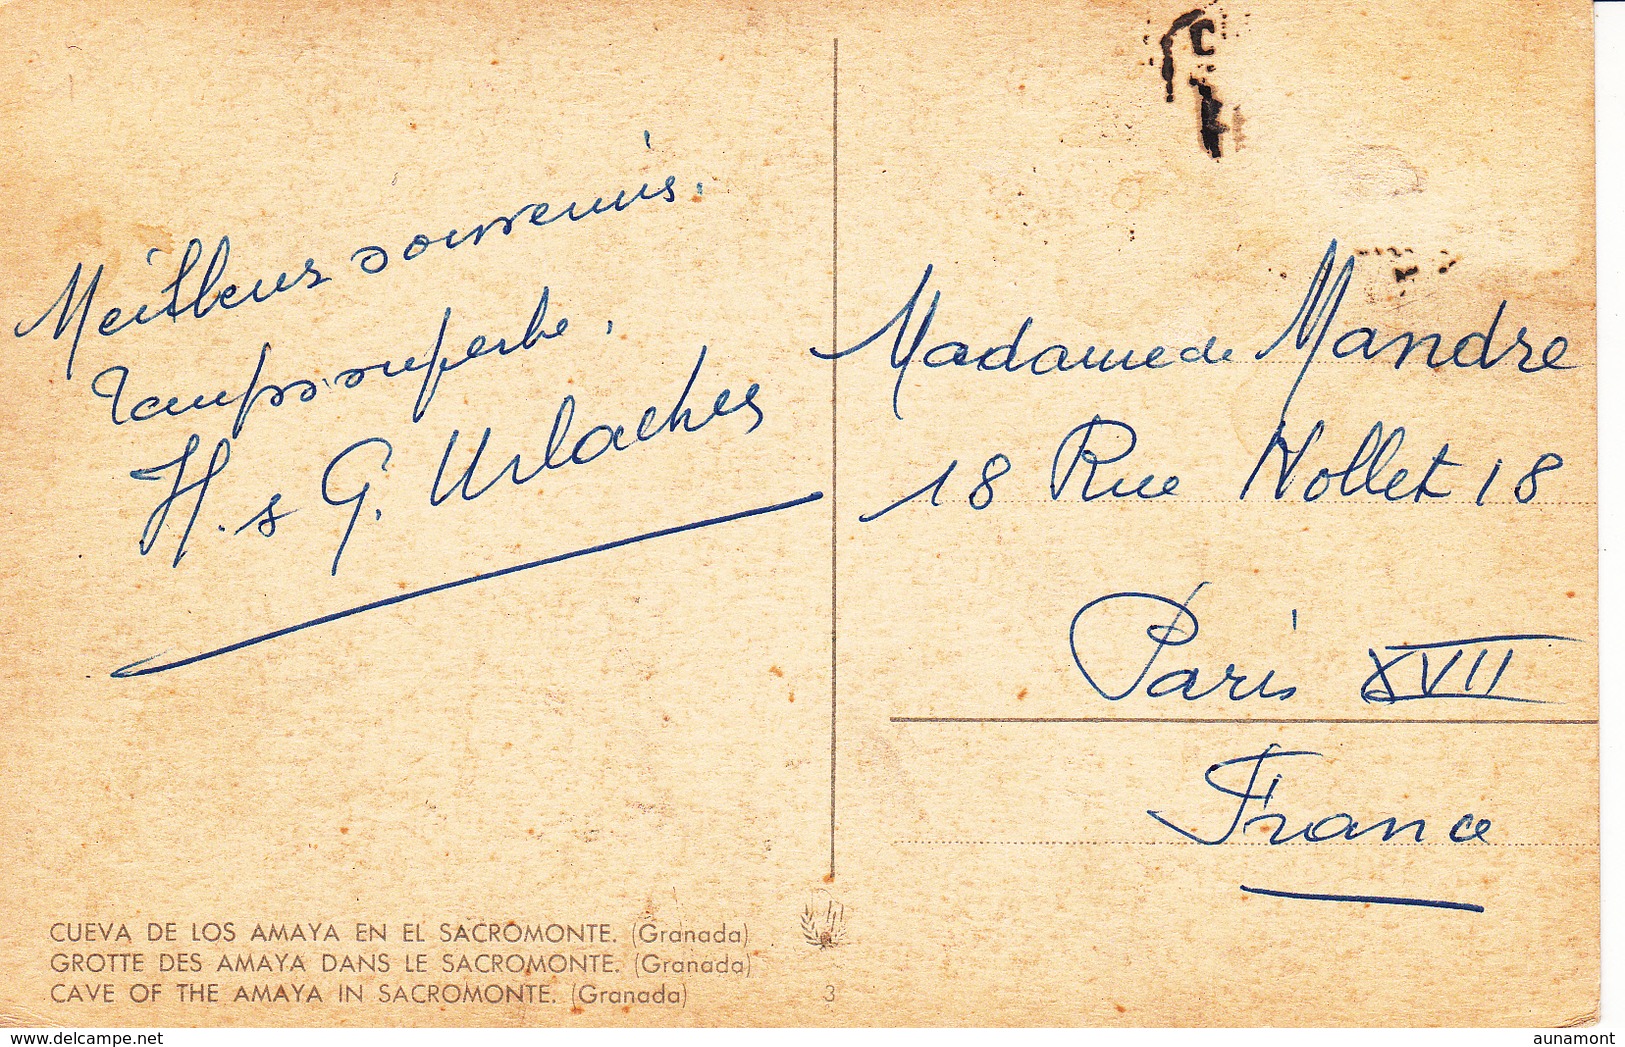 Meilleurs souvenirs.
Temps superbe.
H. & G. Urlacher
Madame de Mandre
18 Rue Nollet 18
Paris XVII
France
CUEVA DE LOS AMAYA EN EL SACROMONTE. (Granada)
GROTTE DES AMAYA DANS LE SACROMONTE. (Granada)
CAVE OF THE AMAYA IN SACROMONTE. (Granada)
3
delcampe.net
aunamont